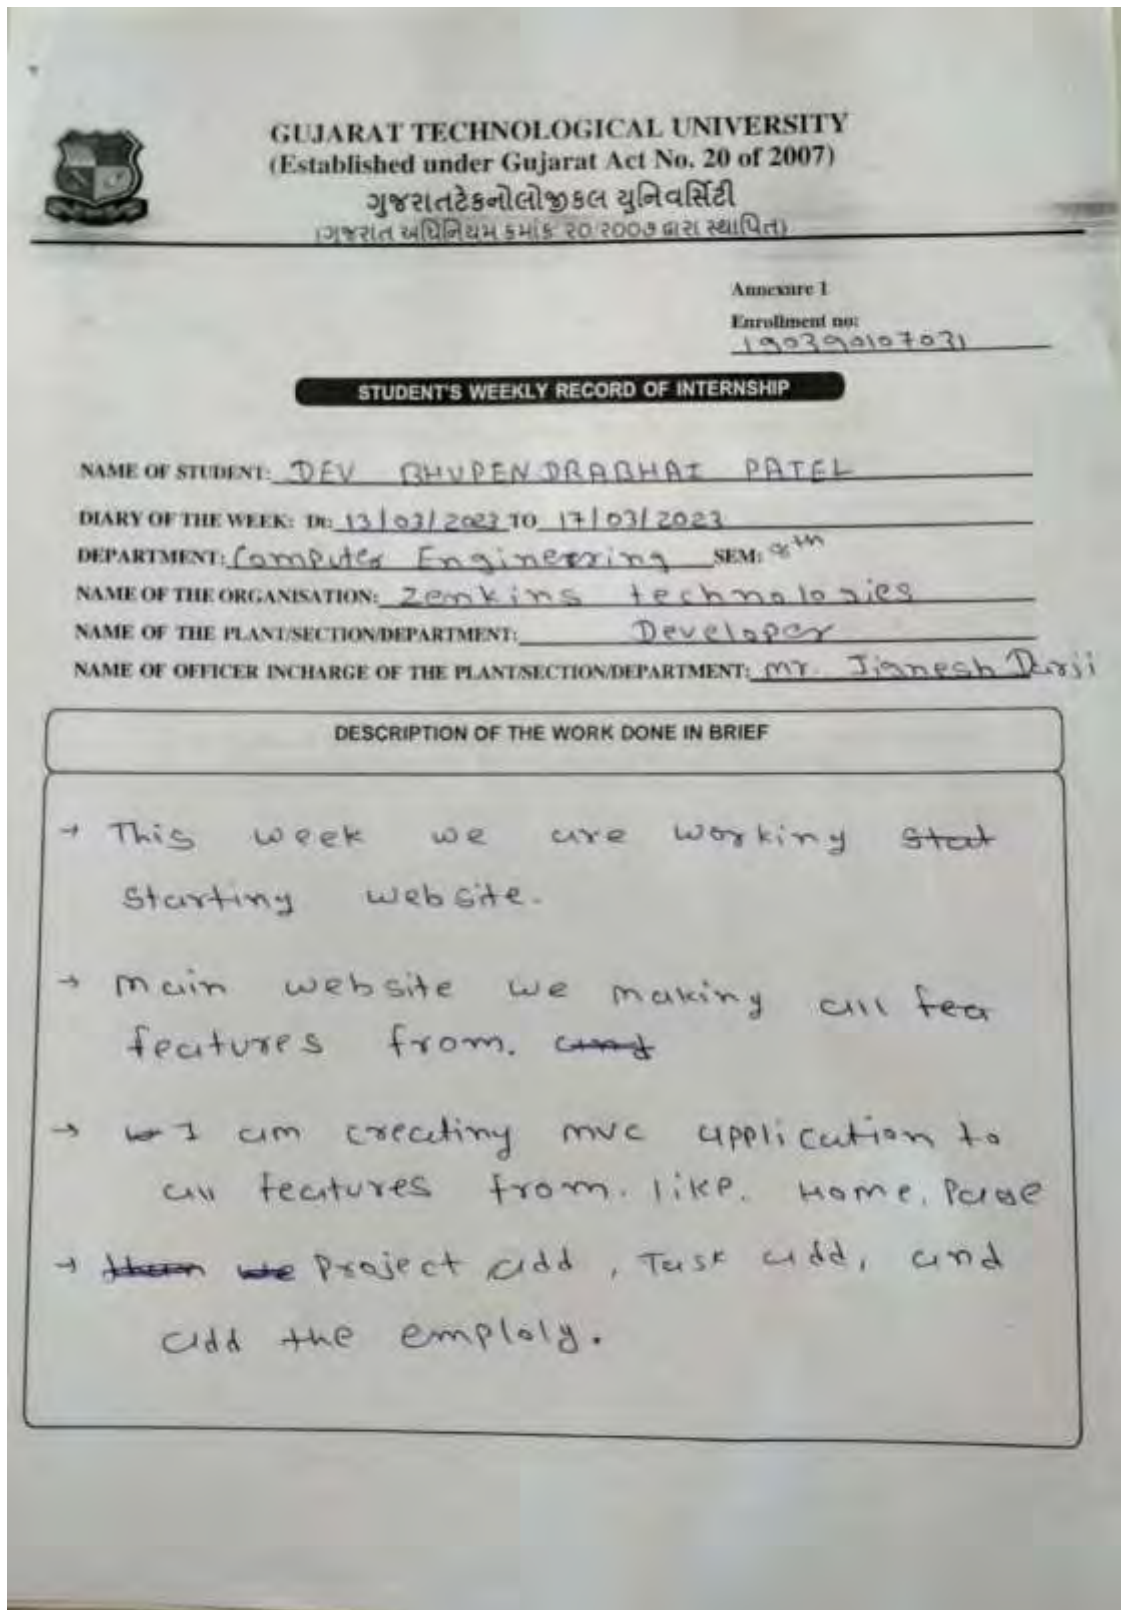 GUJARAT TECHNOLOGICAL UNIVERSITY
(Established under Gujarat Act No. 20 of 2007)
ગુજરાતટેકનોલોજીકલ યુનિવર્સિટી
(ગુજરાત અધિનિયમ ક્રમાંક ૨૦/૨૦૦૭ દ્વારા સ્થાપિત)
Annexure 1
Enrollment no:
190390107031
STUDENT'S WEEKLY RECORD OF INTERNSHIP
NAME OF STUDENT: DEV BHUPENDRABHAI PATEL
DIARY OF THE WEEK: Dt: 13/03/2023 TO 17/03/2023
DEPARTMENT: Computer Engineering SEM: 8th
NAME OF THE ORGANISATION: Zemkins technologies
NAME OF THE PLANT/SECTION/DEPARTMENT: Developer
NAME OF OFFICER INCHARGE OF THE PLANT/SECTION/DEPARTMENT: Mr. Jignesh Darji
DESCRIPTION OF THE WORK DONE IN BRIEF
→ This week we are working stat
starting website.
→ Main website we making all fea
features from. and
→ I am creating mvc application to
all features from. like. Home, Page
→ we Project add, Task add, and
add the emploly.